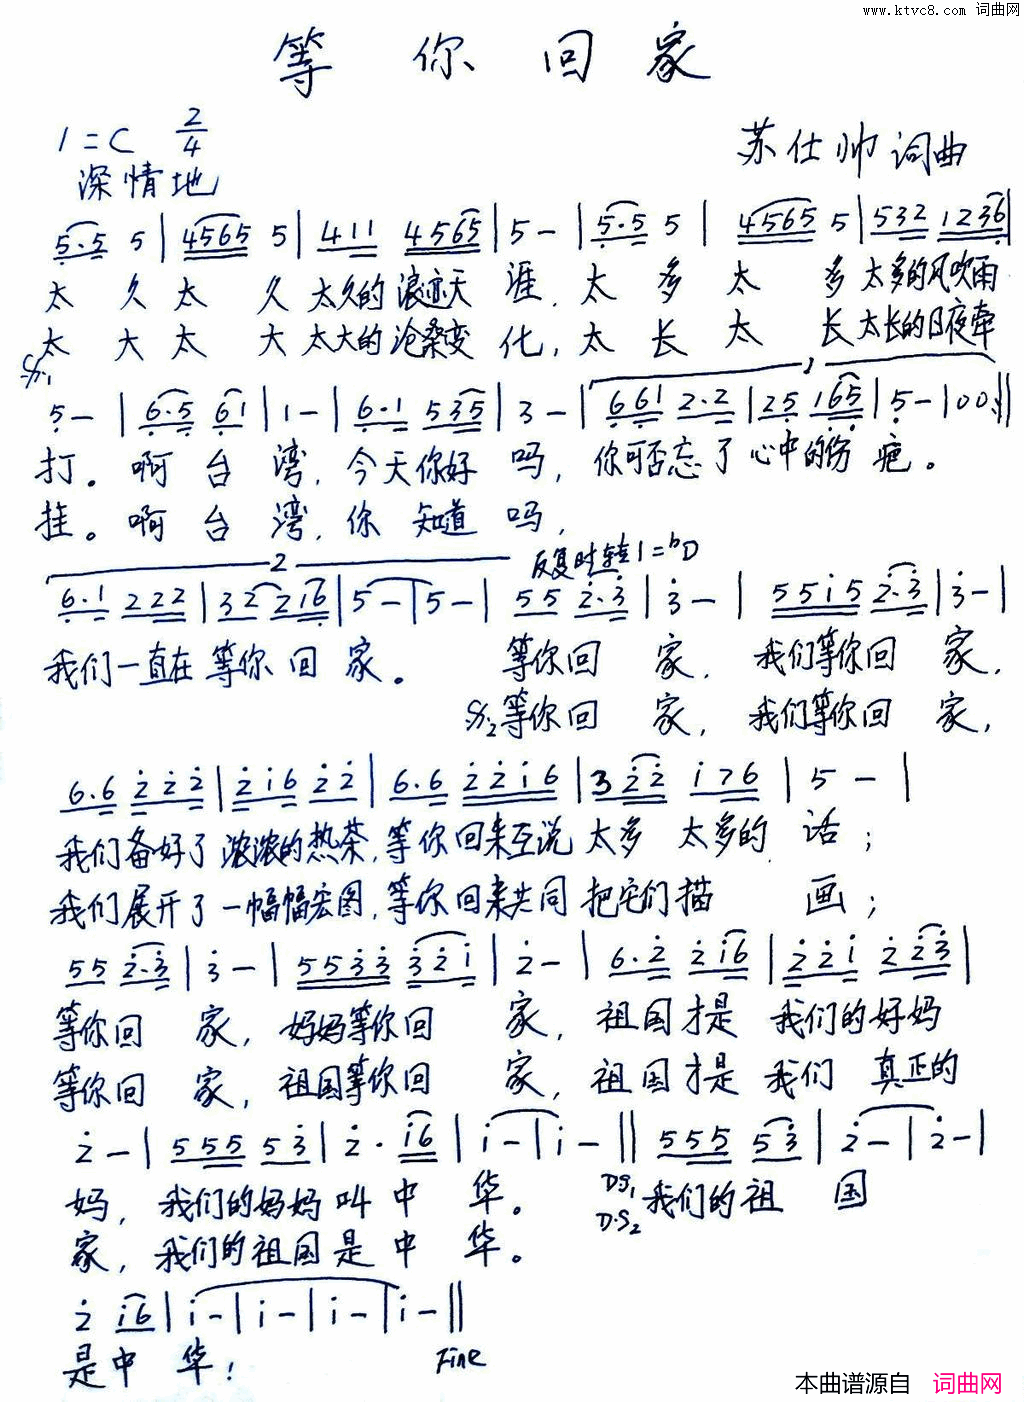 www.ktvc8.com 词曲网
等你回家
1=C 2/4
苏仕帅 词曲
深情地
5.5 5 | 4565 5 | 411 4565 | 5 - | 5.5 5 | 4565 5 | 532 1236 |
太 久 太 久 太久的浪迹天 涯, 太 多 太 多 太多的风吹雨
太 大 太 大 太大的沧桑变 化, 太 长 太 长 太长的日夜牵
5 - | 6.5 61 | 1 - | 6.1 535 | 3 - | 661 2.2 | 25 165 | 5 - | 00 :||
打。啊 台 湾, 今天你好 吗, 你可否忘了心中的伤疤。
挂。啊 台 湾, 你 知道 吗,
2
反复时转1=bD
6.1 222 | 32 216 | 5 - | 5 - | 55 2.3 | 3 - | 5515 2.3 | 3 - |
我们一直在等你 回 家。 等你回 家, 我们等你回 家,
等你回 家, 我们等你回 家,
6.6 222 | 216 22 | 6.6 2216 | 322 176 | 5 - |
我们备好了浓浓的热茶,等你回来互说太多 太多的 话;
我们展开了一幅幅宏图,等你回来共同把它们描 画;
55 2.3 | 3 - | 5533 321 | 2 - | 6.2 216 | 221 223 |
等你回 家, 妈妈等你回 家, 祖国才是 我们的好妈
等你回 家, 祖国等你回 家, 祖国才是 我们 真正的
2 - | 555 53 | 2. 16 | 1 - | 1 - || 555 53 | 2 - | 2 - |
妈, 我们的妈妈叫 中 华。 D.S1 我们的祖 国
家, 我们的祖国是 中 华。 D.S2
2 16 | 1 - | 1 - | 1 - | 1 - ||
是中 华! Fine
本曲谱源自 词曲网